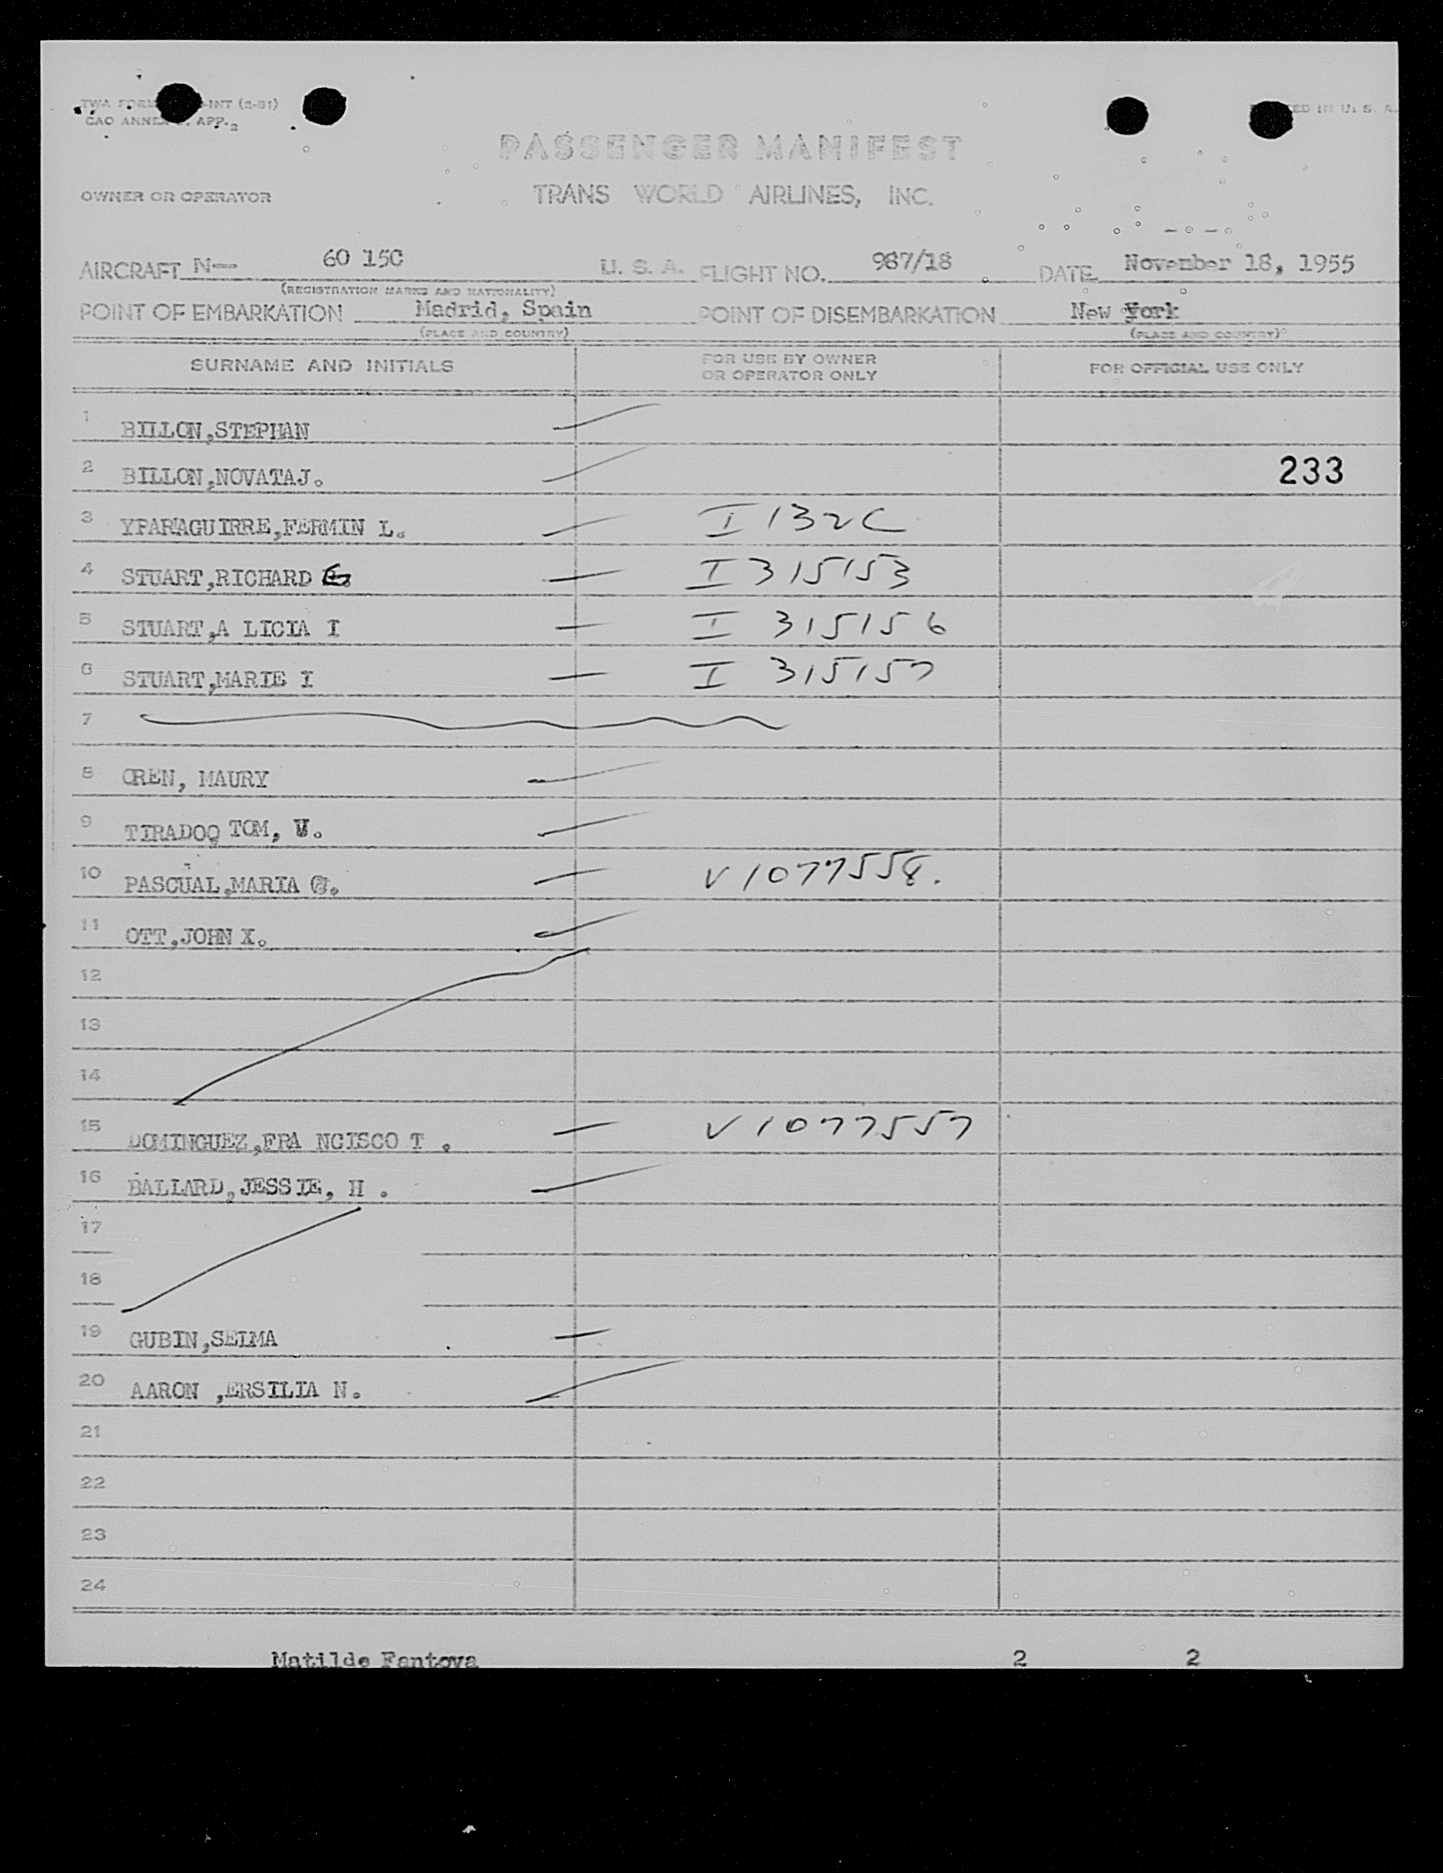 TWA FORM -INT (2-51) PRINTED IN U. S. A.
CAO ANNEX APP. 2
PASSENGER MANIFEST
OWNER OR OPERATOR TRANS WORLD AIRLINES, INC.
AIRCRAFT N— 60 15C U. S. A. FLIGHT NO. 987/18 DATE November 18, 1955
(REGISTRATION MARKS AND NATIONALITY)
POINT OF EMBARKATION Madrid, Spain POINT OF DISEMBARKATION New York
(PLACE AND COUNTRY) (PLACE AND COUNTRY)
SURNAME AND INITIALS FOR USE BY OWNER OR OPERATOR ONLY FOR OFFICIAL USE ONLY
1 BILLON,STEPHAN
2 BILLON,NOVATAJ. 233
3 YPARAGUIRRE,FERMIN L. I 132C
4 STUART,RICHARD G. I 315153
5 STUART,A LICIA I I 315156
6 STUART,MARIE I I 315157
7
8 OREN, MAURY
9 TIRADOO TOM, V.
10 PASCUAL,MARIA G. V 1077558.
11 OTT,JOHN X.
12
13
14
15 DOMINGUEZ,FRA NCISCO T . V 1077557
16 BALLARD,JESSIE, H .
17
18
19 GUBIN,SELMA
20 AARON ,ERSILIA N.
21
22
23
24
Matilde Fantova 2 2